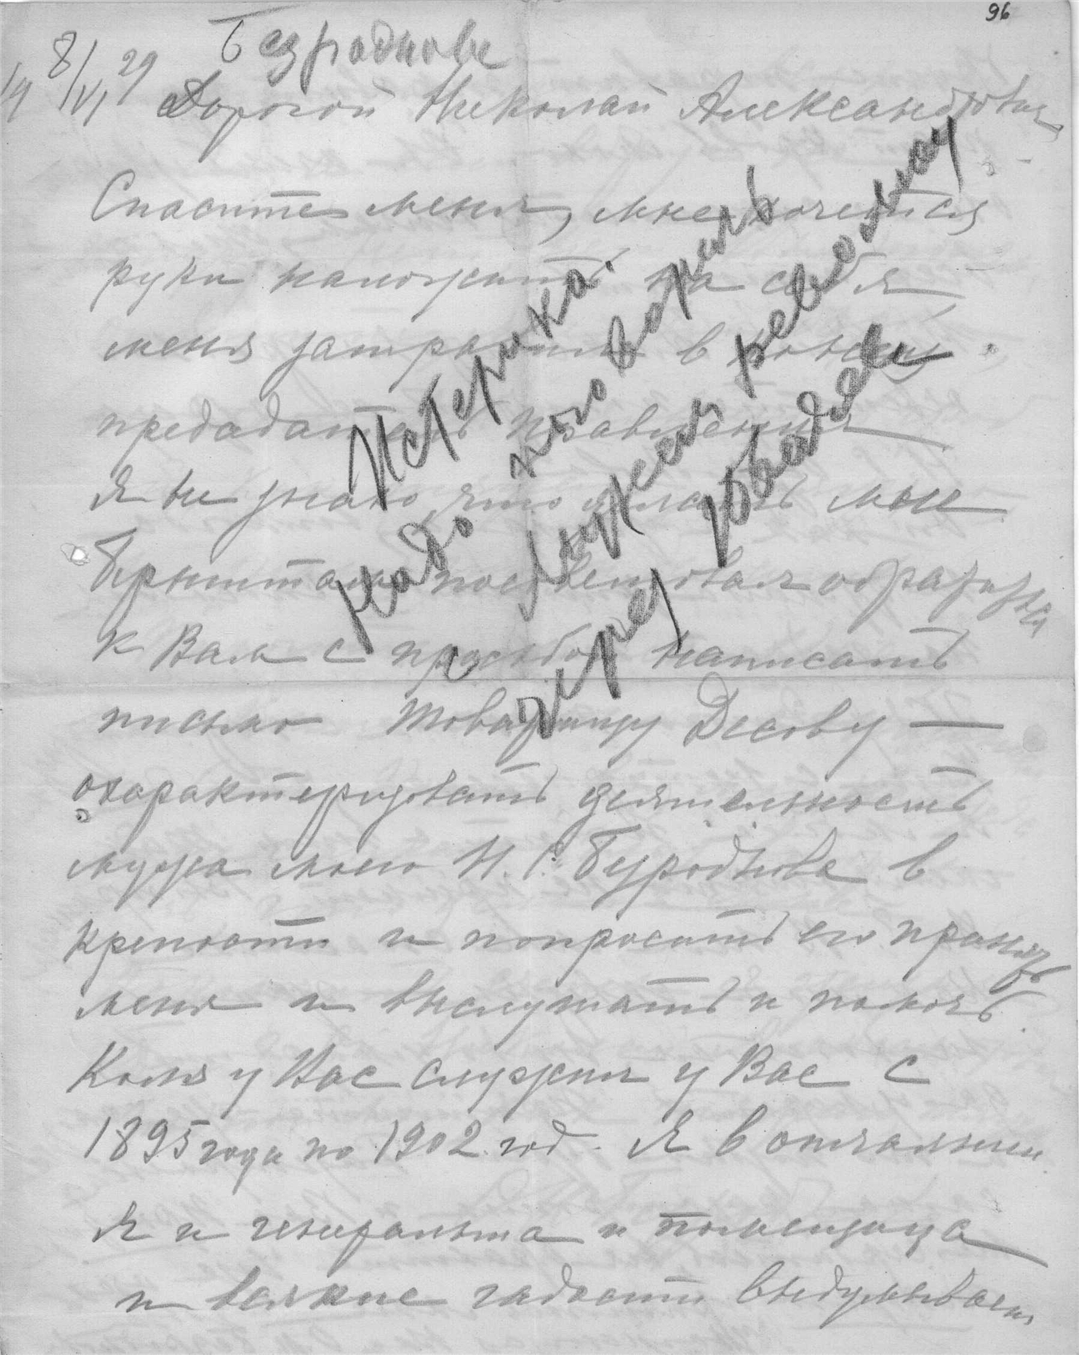 96
Безроднова
19 8/VI 29
Дорогой Николай Александрович
Спасите меня, мне хочется
руки наложить на себя,
меня затравили в конец.
предодать правления
Я не знаю что делать мне
посоветовал обратиться
к Вам с просьбой написать
письмо товарищу Десову —
охарактеризовать деятельность
мужа моего Н. С. Безроднова в
крепости и попросить его принять
меня и выслушать и помочь.
Коля у Вас служил у Вас с
1895 года по 1902 год. Я в отчаянии.
Я и генеральша и помещица
и всякие гадости выдумывают
Истерика.
Надо что
перед